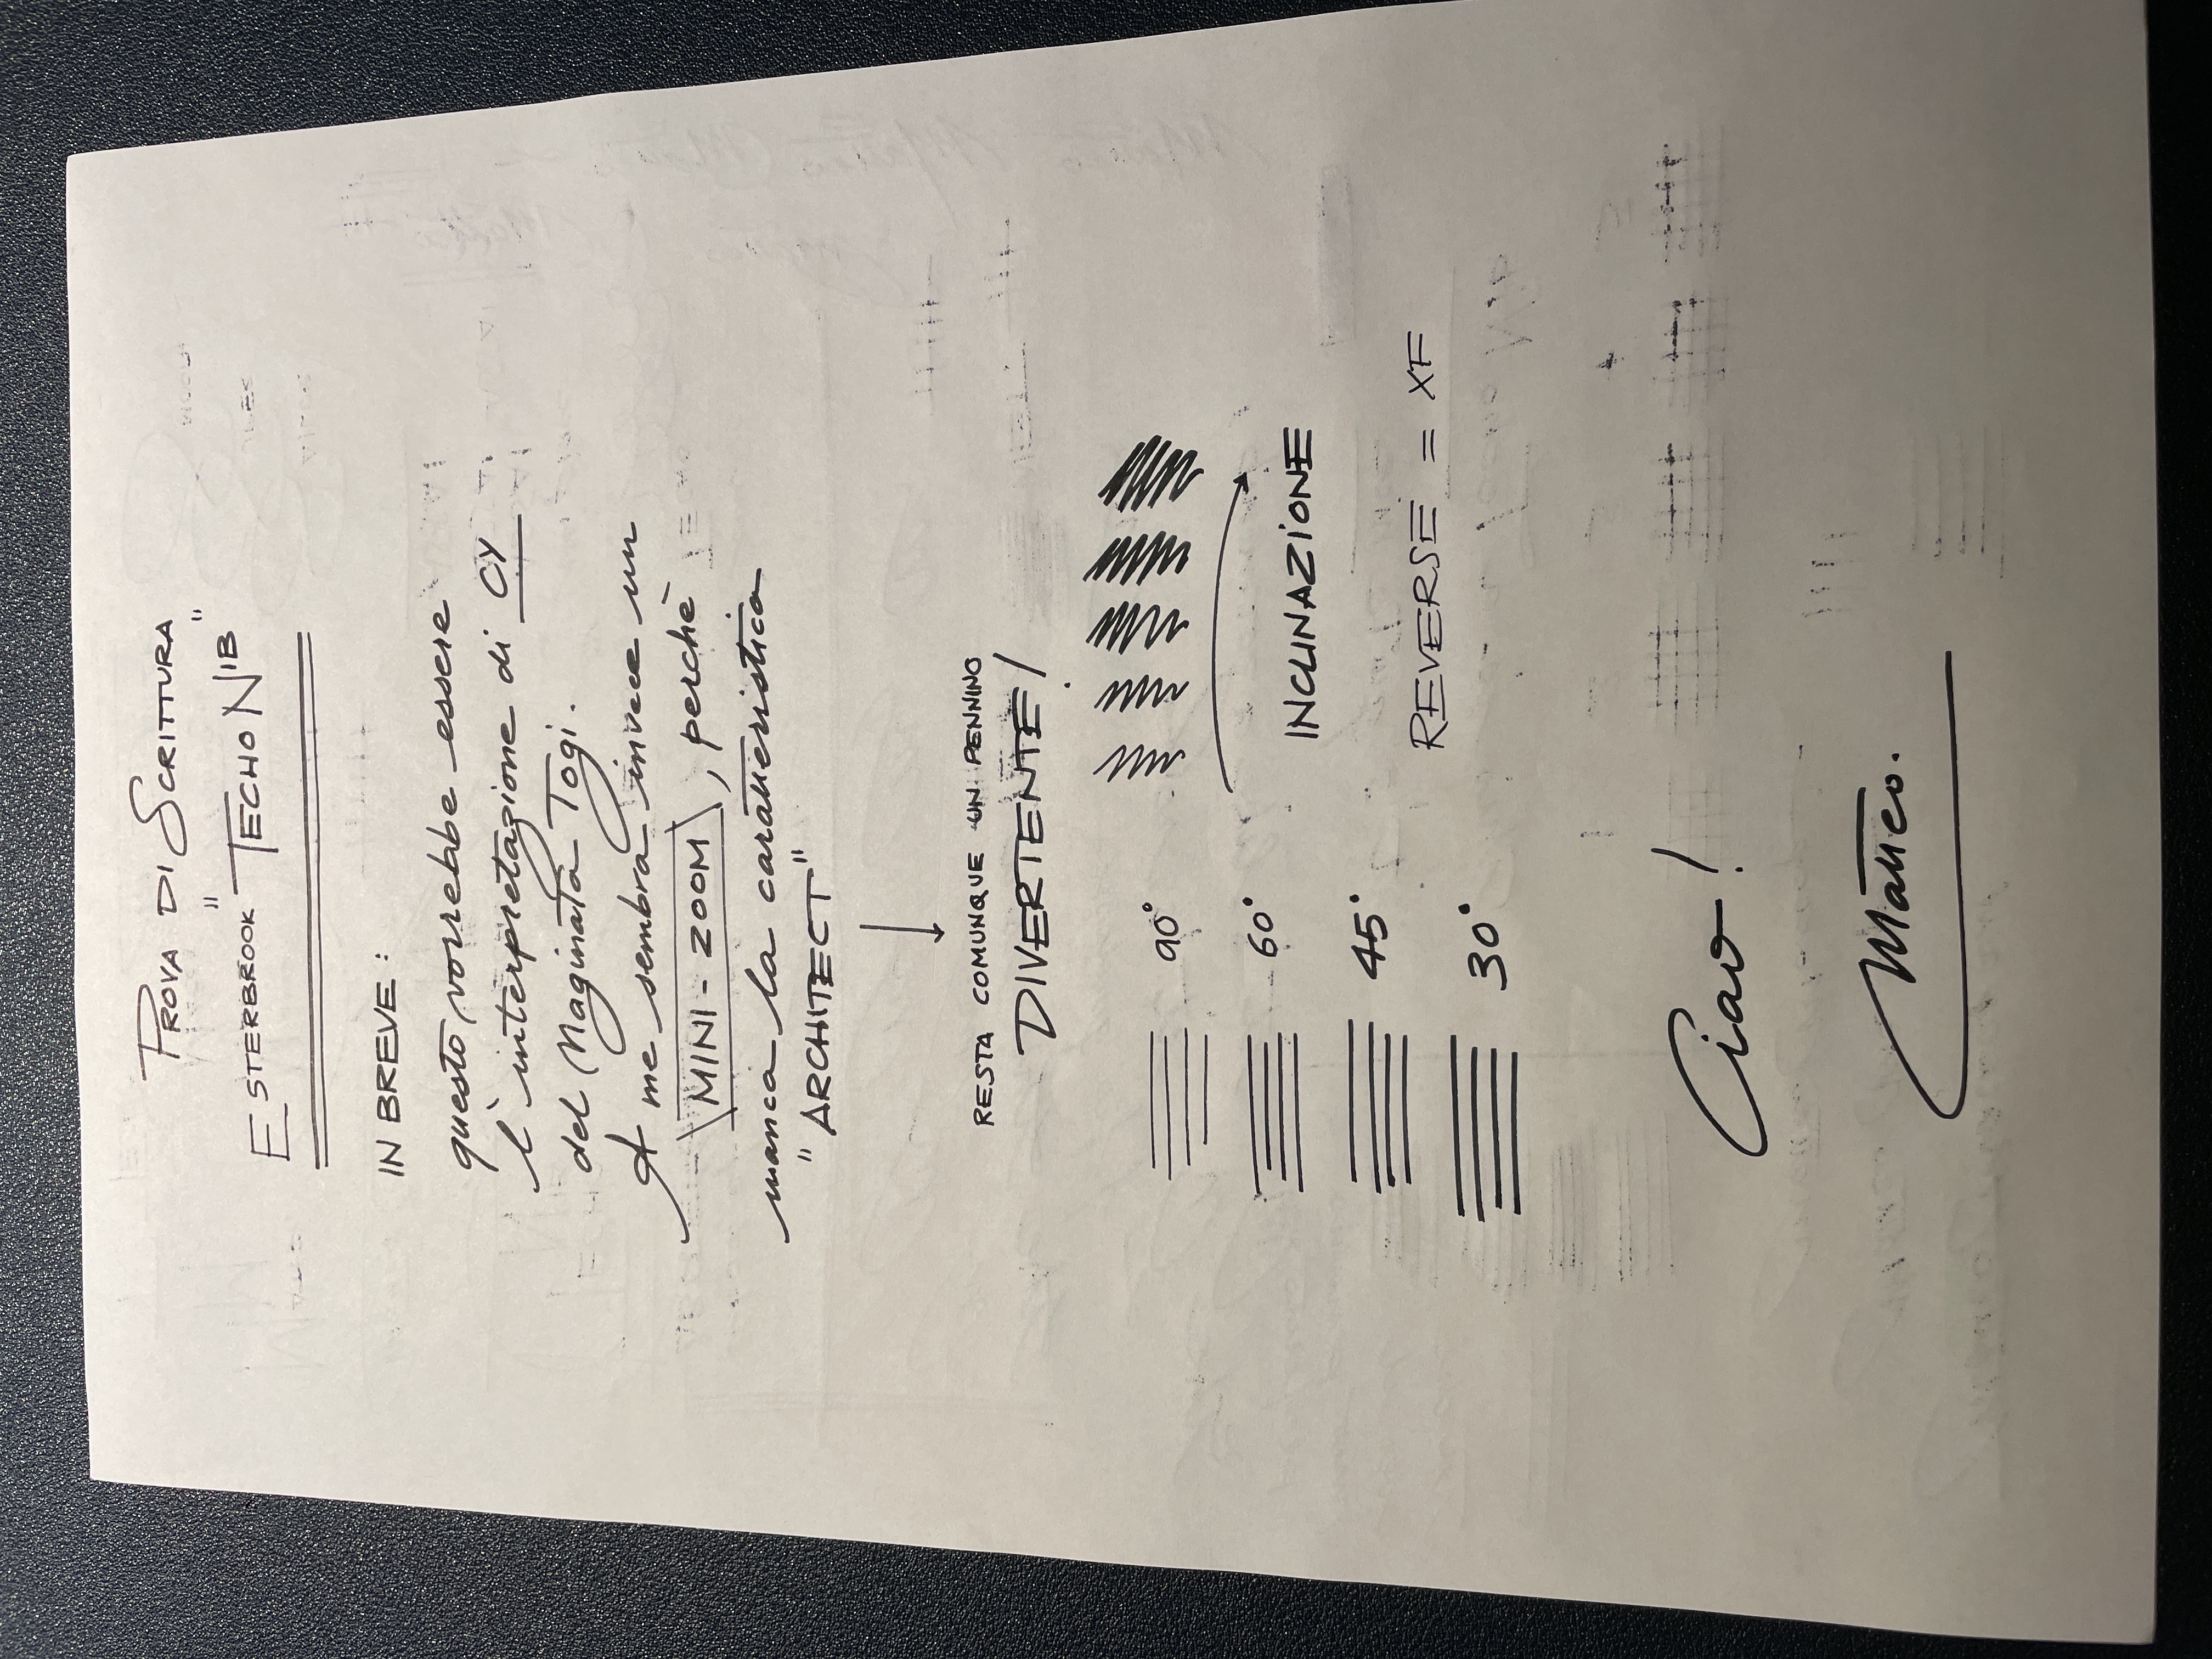 PROVA DI SCRITTURA
ESTERBROOK "TECHO NIB"
IN BREVE:
questo vorrebbe essere
l'interpretazione di CY
del Naginata Togi.
A me sembra invece un
MINI-ZOOM, perchè
manca la caratteristica
"ARCHITECT"
RESTA COMUNQUE UN PENNINO
DIVERTENTE!
90°
60°
45°
30°
INCLINAZIONE
REVERSE = XF
Ciao!
Matteo.